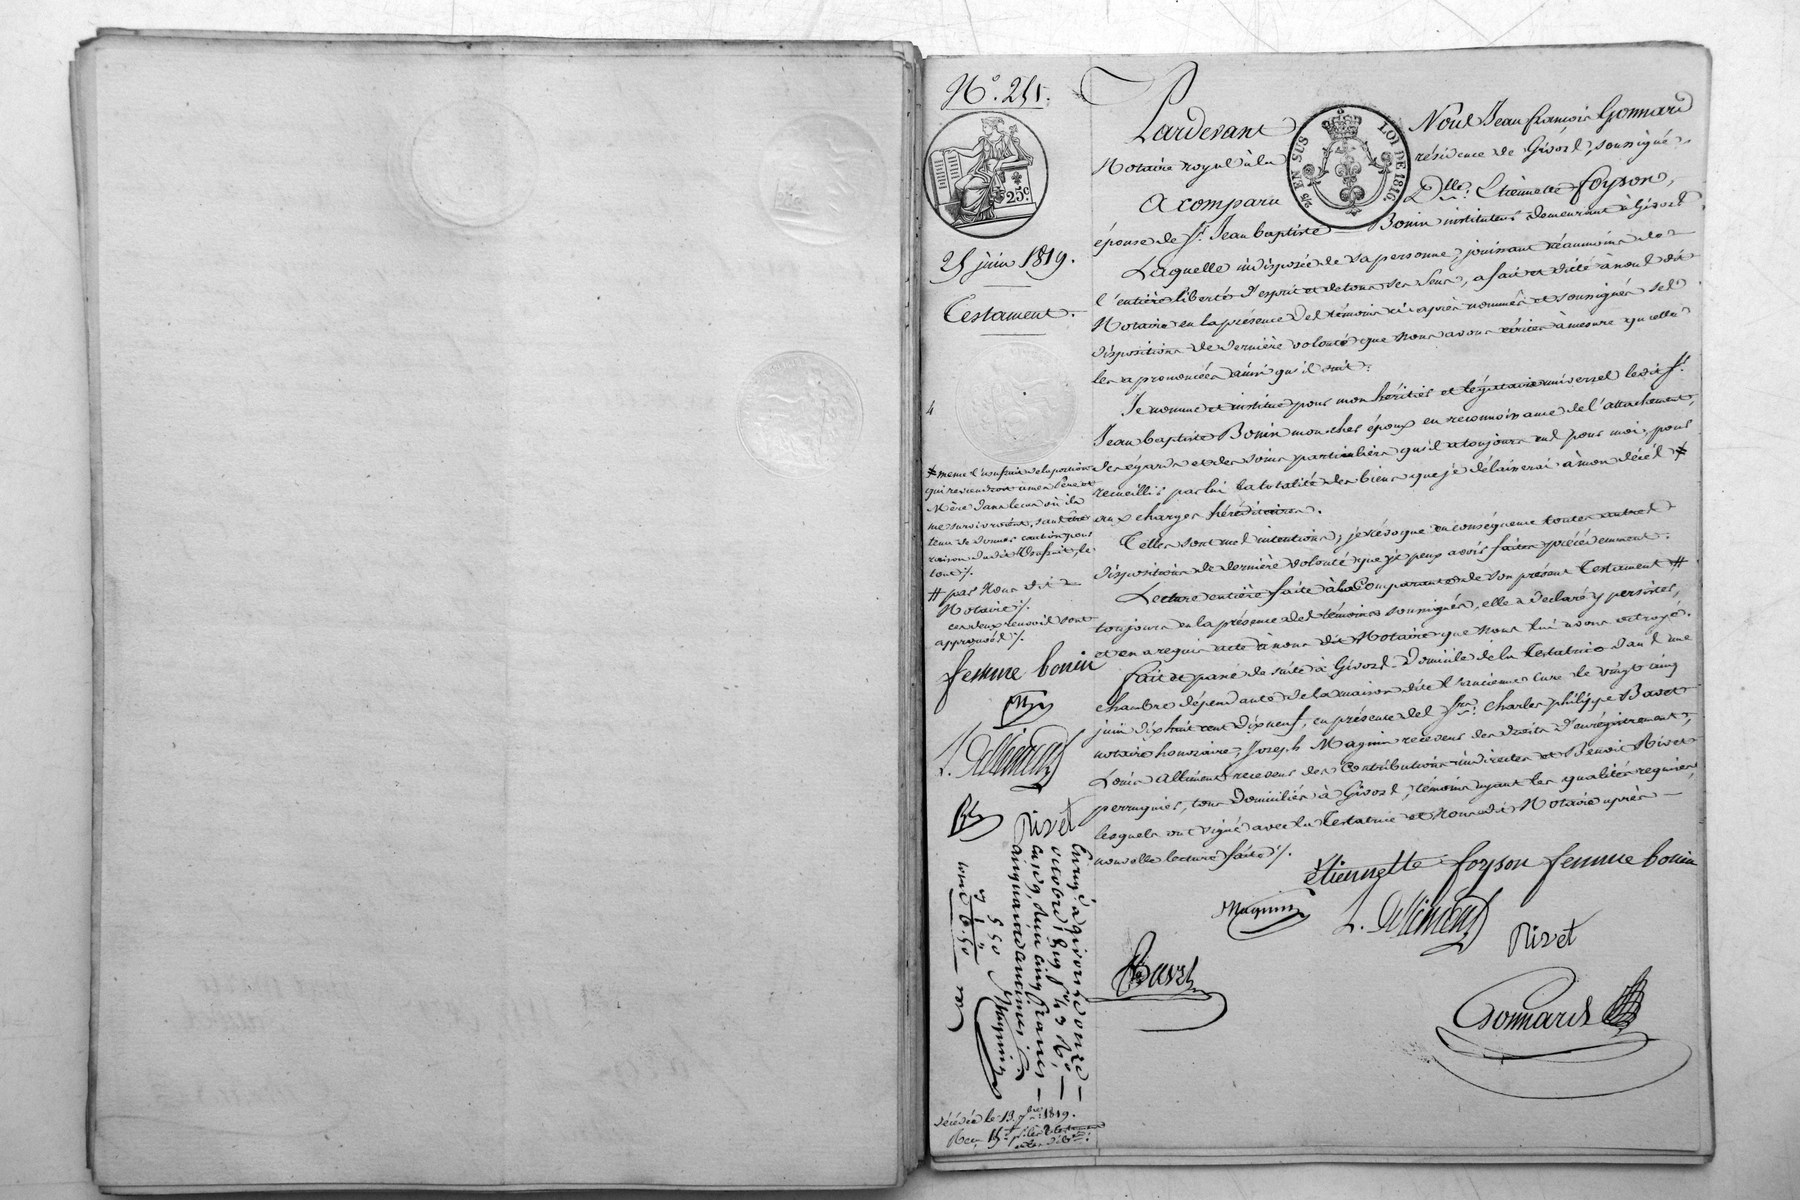 N°. 251.
25c.
25 juin 1819.
Testament.
2/5 EN SUS
LOI DE 1816.
Pardevant Nous Jean françois Gonnard
Notaire royal à la résidence de Givors, soussigné,
A comparu Dlle. Etiennette foyson,
épouse de Sr. Jean baptiste Bonin instituteur demeurant à Givors.
Laquelle indisposée de sa personne, jouissant néaumoins de
l'entière liberté d'esprit et de tous ses sens, a fait et dicté à nous dit
Notaire en la présence des témoins ci-après nommés et soussignés ses
dispositions de dernière volonté que nous avons écrites à mesure qu'elle
les a prononcées ainsi qu'il suit:
Je nomme et institue pour mon héritier et légataire universel ledit Sr.
Jean baptiste Bonin mon cher époux en reconnoissance de l'attachement,
des égards et des soins particuliers qu'il a toujours eus pour moi, pour
recueillir par lui la totalité des biens que je délaisserai à mon décès #
aux charges héréditaires.
Telles sont mes intentions, je révoque en conséquence toutes autres
dispositions de dernière volonté que je peux avoir faites précédemment.
Lecture entière faite à la Comparante de son présent Testament #
toujours en la présence des témoins soussignés, elle a déclaré y persister,
et en a requis acte à nous dit Notaire que nous lui avons octroyé.
fait et passé de suite à Givors domicile de la Testatrice dans une
chambre dépendante de la maison dite l'ancienne Cure le vingt cinq
juin dix huit cent dix neuf, en présence des Srs. Charles philippe Bavet
notaire honoraire, Joseph Magnin receveur des droits d'enregistrement,
Louis Allimend receveur des Contributions indirectes et Benoit Rivet
perruquier, tous domiciliés à Givors, témoins ayant les qualités requises,
lesquels ont signé avec la Testatrice et Nous dit Notaire après
nouvelle lecture faite ./.
étiennette foyson femme bonin
Magnin
L. Allimend
Rivet
Bavet
Gonnard
# même l'usufruit de la portion
qui reviendroit à mes Père et
Mère dans le cas où ils
me survivroient, sans être
tenu de donner caution pour
raison dudit Usufruit, le
tout ./.
# par Nous dit
Notaire ./.
ces deux renvois sont
approuvés ./.
femme bonin
L. Allimend
Rivet
Enregé à givors le onze
octobre 1819 fo 43 Ro,
case 9, reçu cinq francs
cinquante centimes
Magnin
5 50
6.50
décédée le 13 7bre 1819.